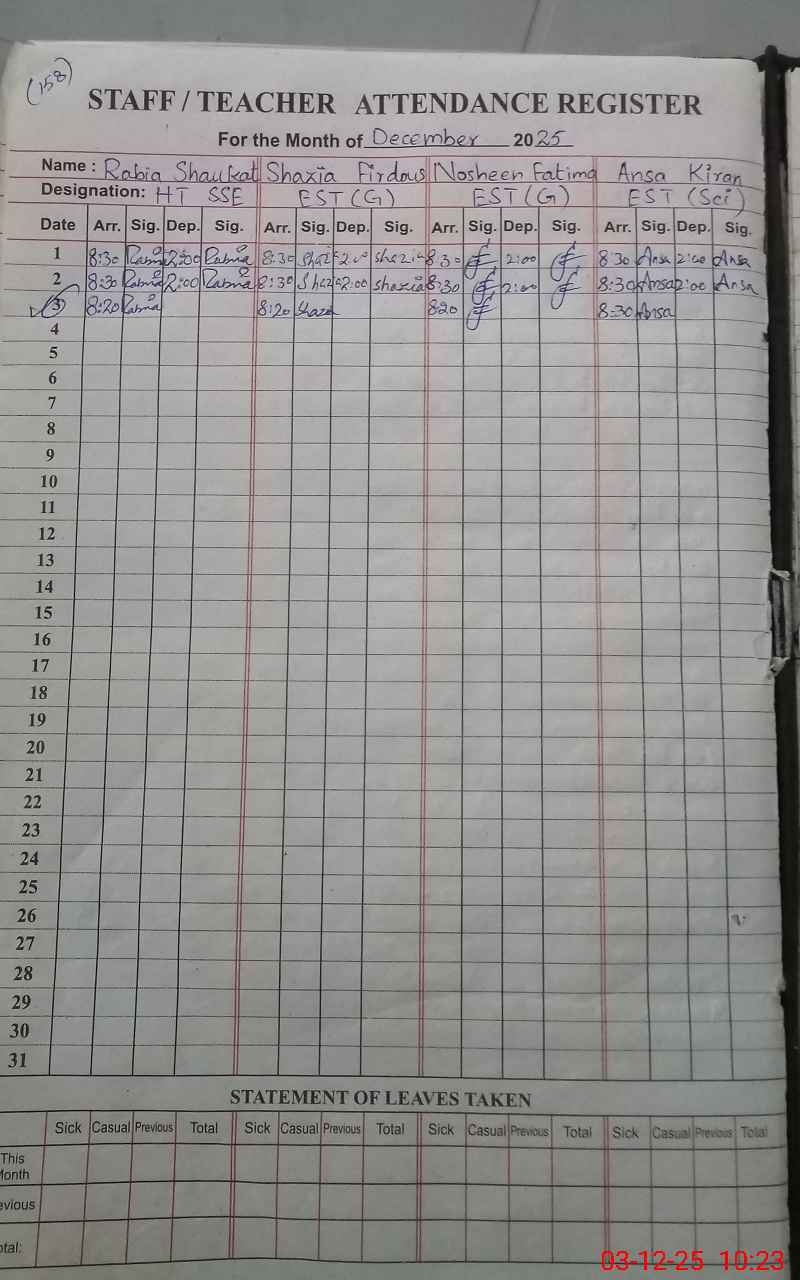 (158)
STAFF / TEACHER ATTENDANCE REGISTER
For the Month of December 2025
Name : Rabia Shaukat Shazia Firdous Nosheen Fatima Ansa Kiran
Designation: HT SSE EST (G) EST (G) EST (Sci)
Date Arr. Sig. Dep. Sig. Arr. Sig. Dep. Sig. Arr. Sig. Dep. Sig. Arr. Sig. Dep. Sig.
1 8:30 Rabia 2:00 Rabia 8:30 Shaz 2:00 Shazia 8:30 2:00 8:30 Ansa 2:00 Ansa
2 8:30 Rabia 2:00 Rabia 8:30 Shaz 2:00 Shazia 8:30 2:00 8:30 Ansa 2:00 Ansa
3 8:20 Rabia 8:20 Shaz 8:20 8:30 Ansa
4
5
6
7
8
9
10
11
12
13
14
15
16
17
18
19
20
21
22
23
24
25
26
27
28
29
30
31
STATEMENT OF LEAVES TAKEN
Sick Casual Previous Total Sick Casual Previous Total Sick Casual Previous Total Sick Casual Previous Total
This
Month
evious
otal:
03-12-25 10:23